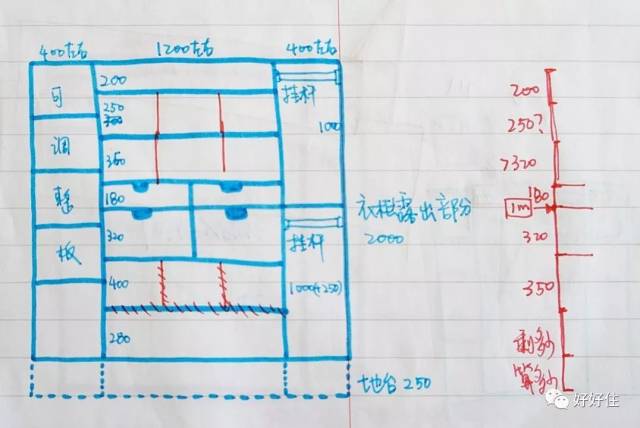 400左右
1200左右
400左右
可
调
整
板
200
250
350
180
320
400
280
挂杆
1000
挂杆
1000(+250)
衣柜露出部分
2000
地台 250
200
250?
>320
180
1m
320
350
剩多少
算多少
好好住